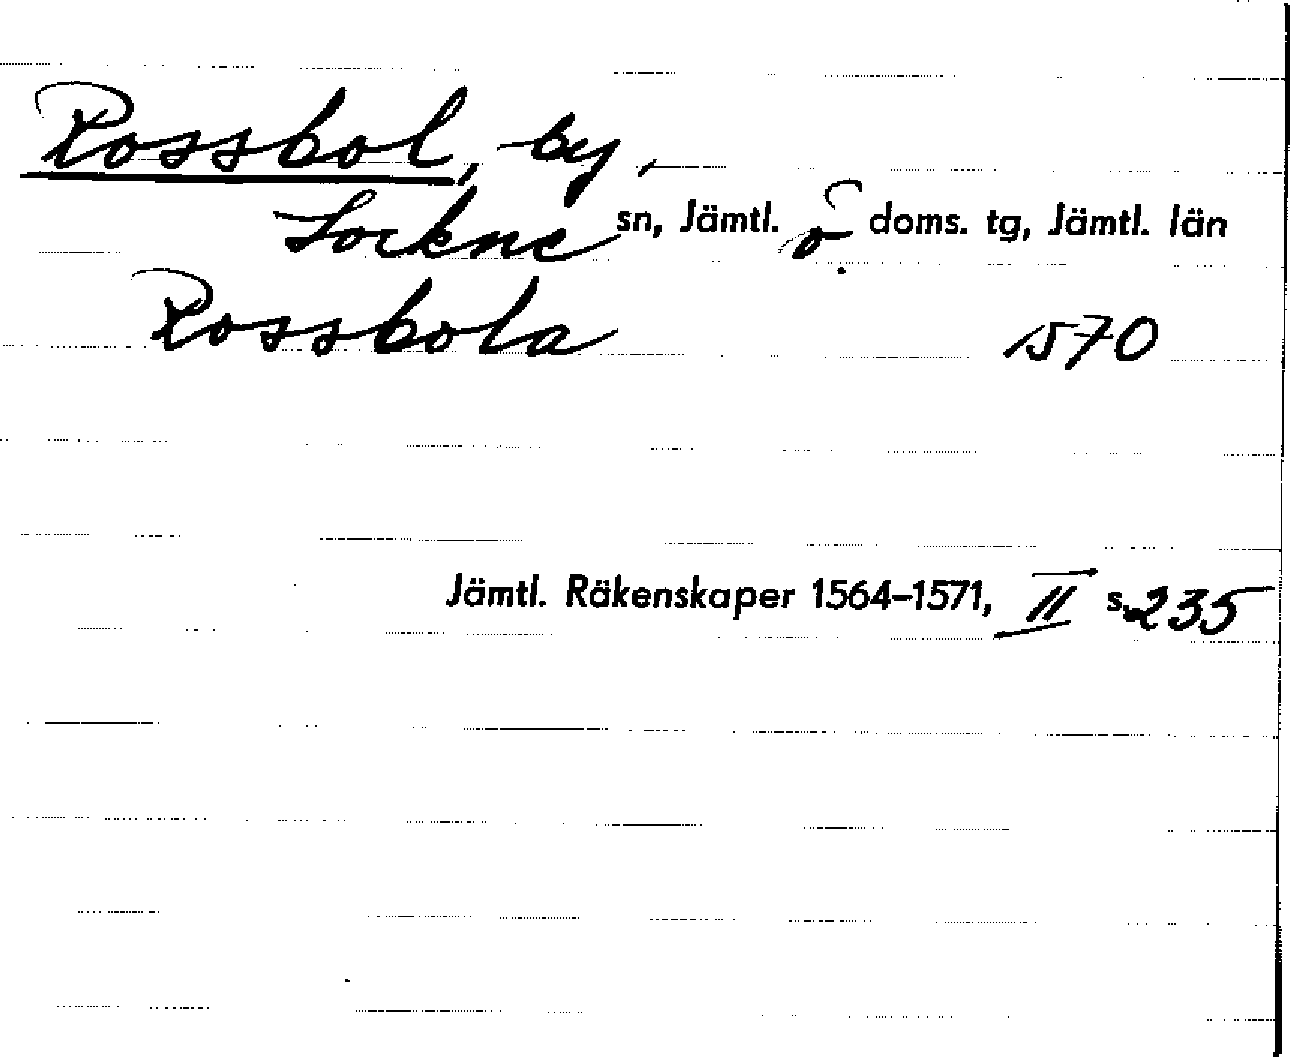 Rossbol, by,
Lockne sn, Jämtl. ö. doms. tg, Jämtl. län
Rossbola 1570
Jämtl. Räkenskaper 1564–1571, II s. 235